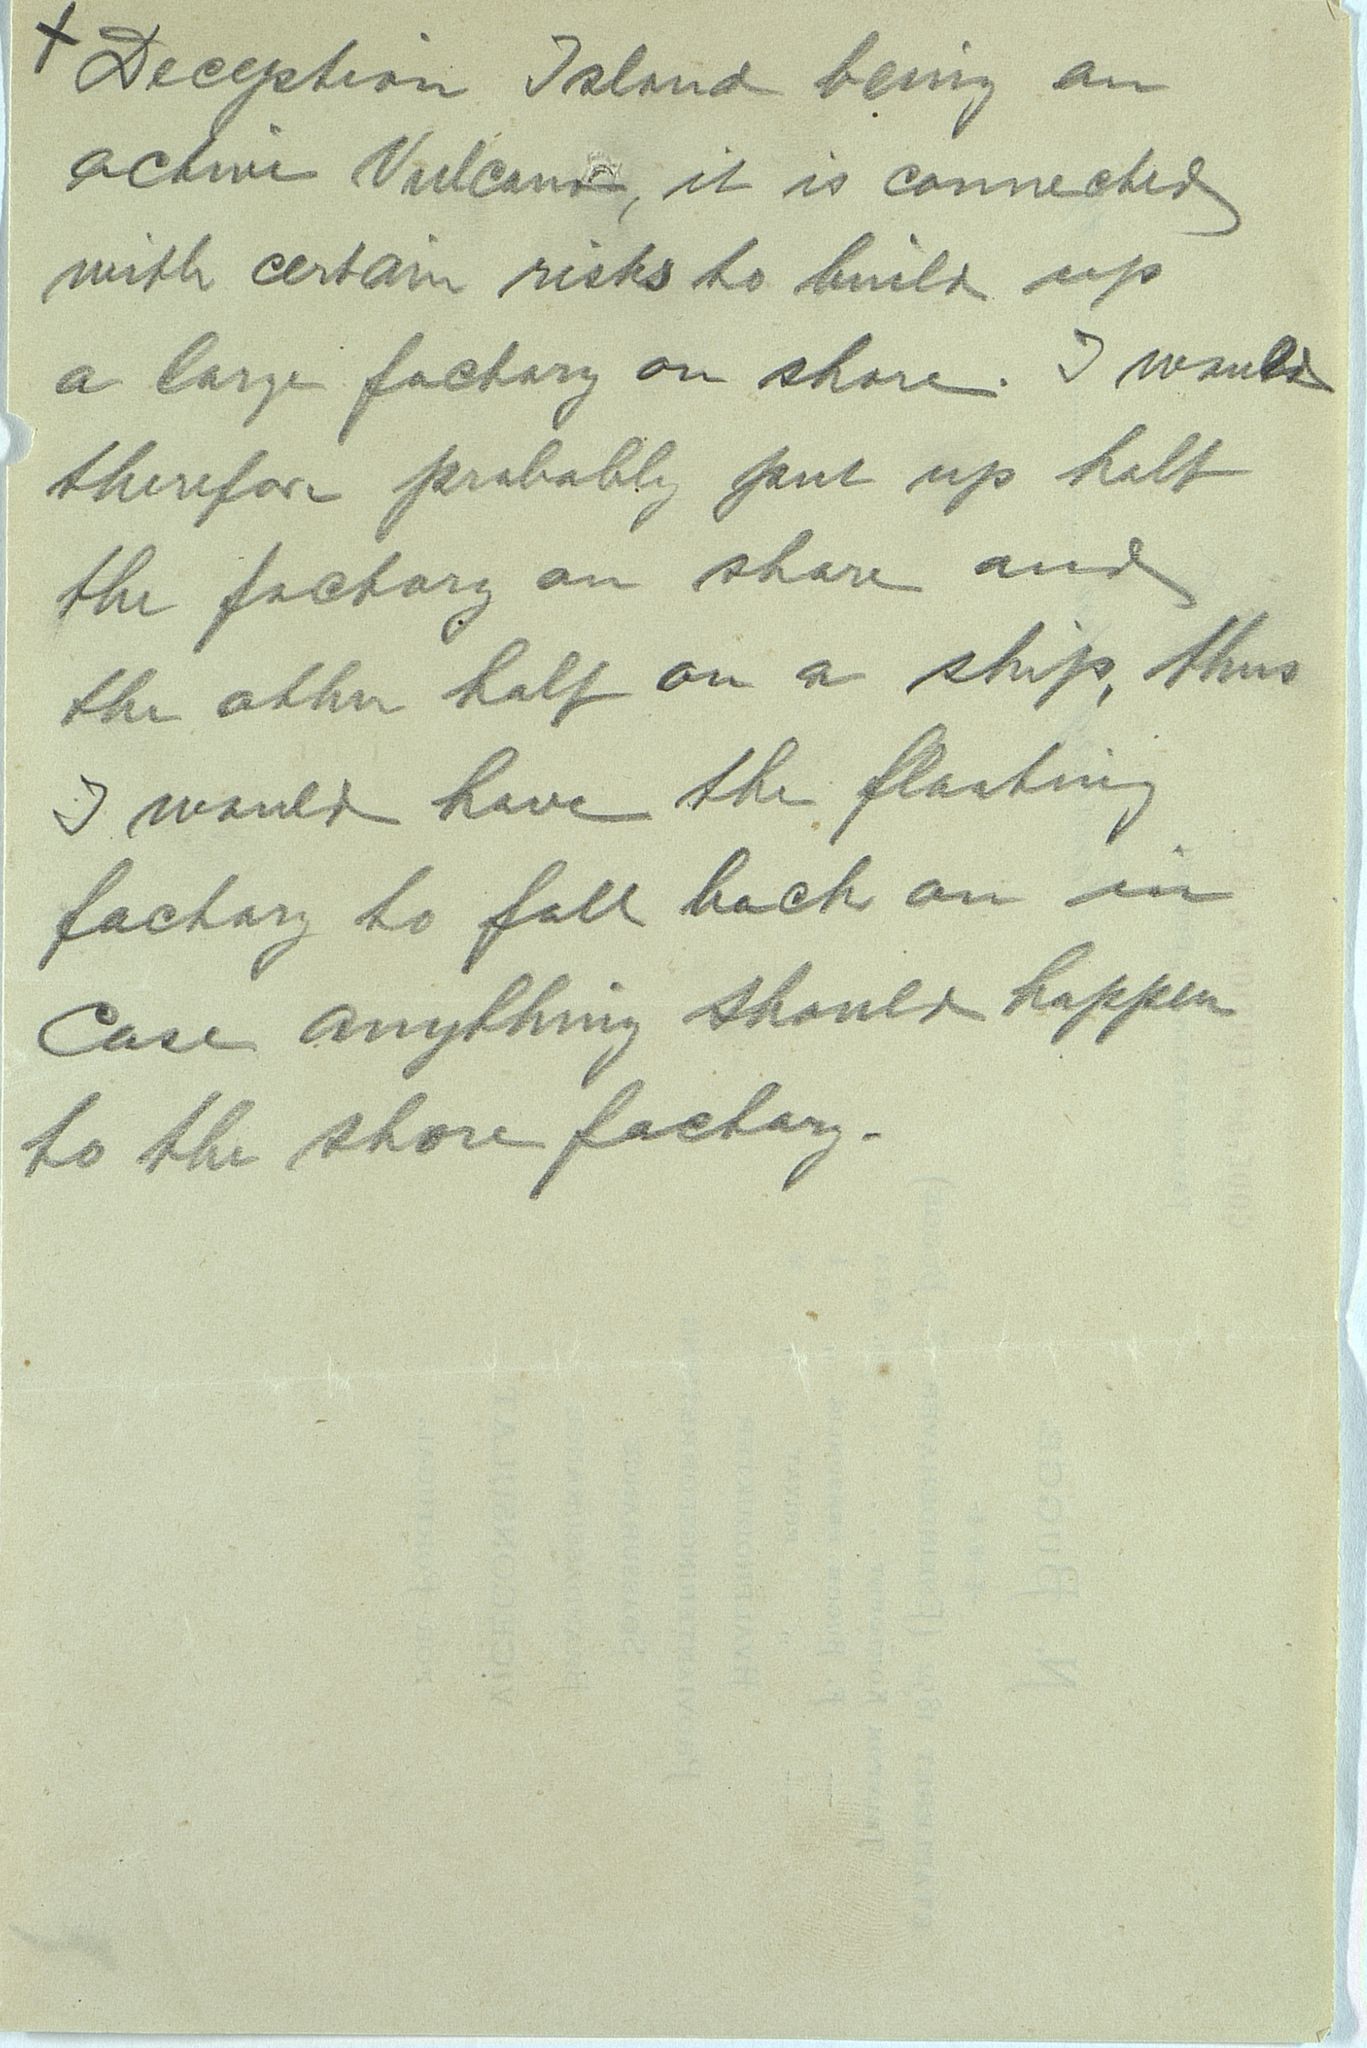 + Deception Island being an
active Vulcano, it is connected
with certain risks to build up
a large factory on shore. I would
therefore probably put up half
the factory on shore and
the other half on a ship, thus
I would have the floating
factory to fall back on in
Case anything should happen
to the shore factory.